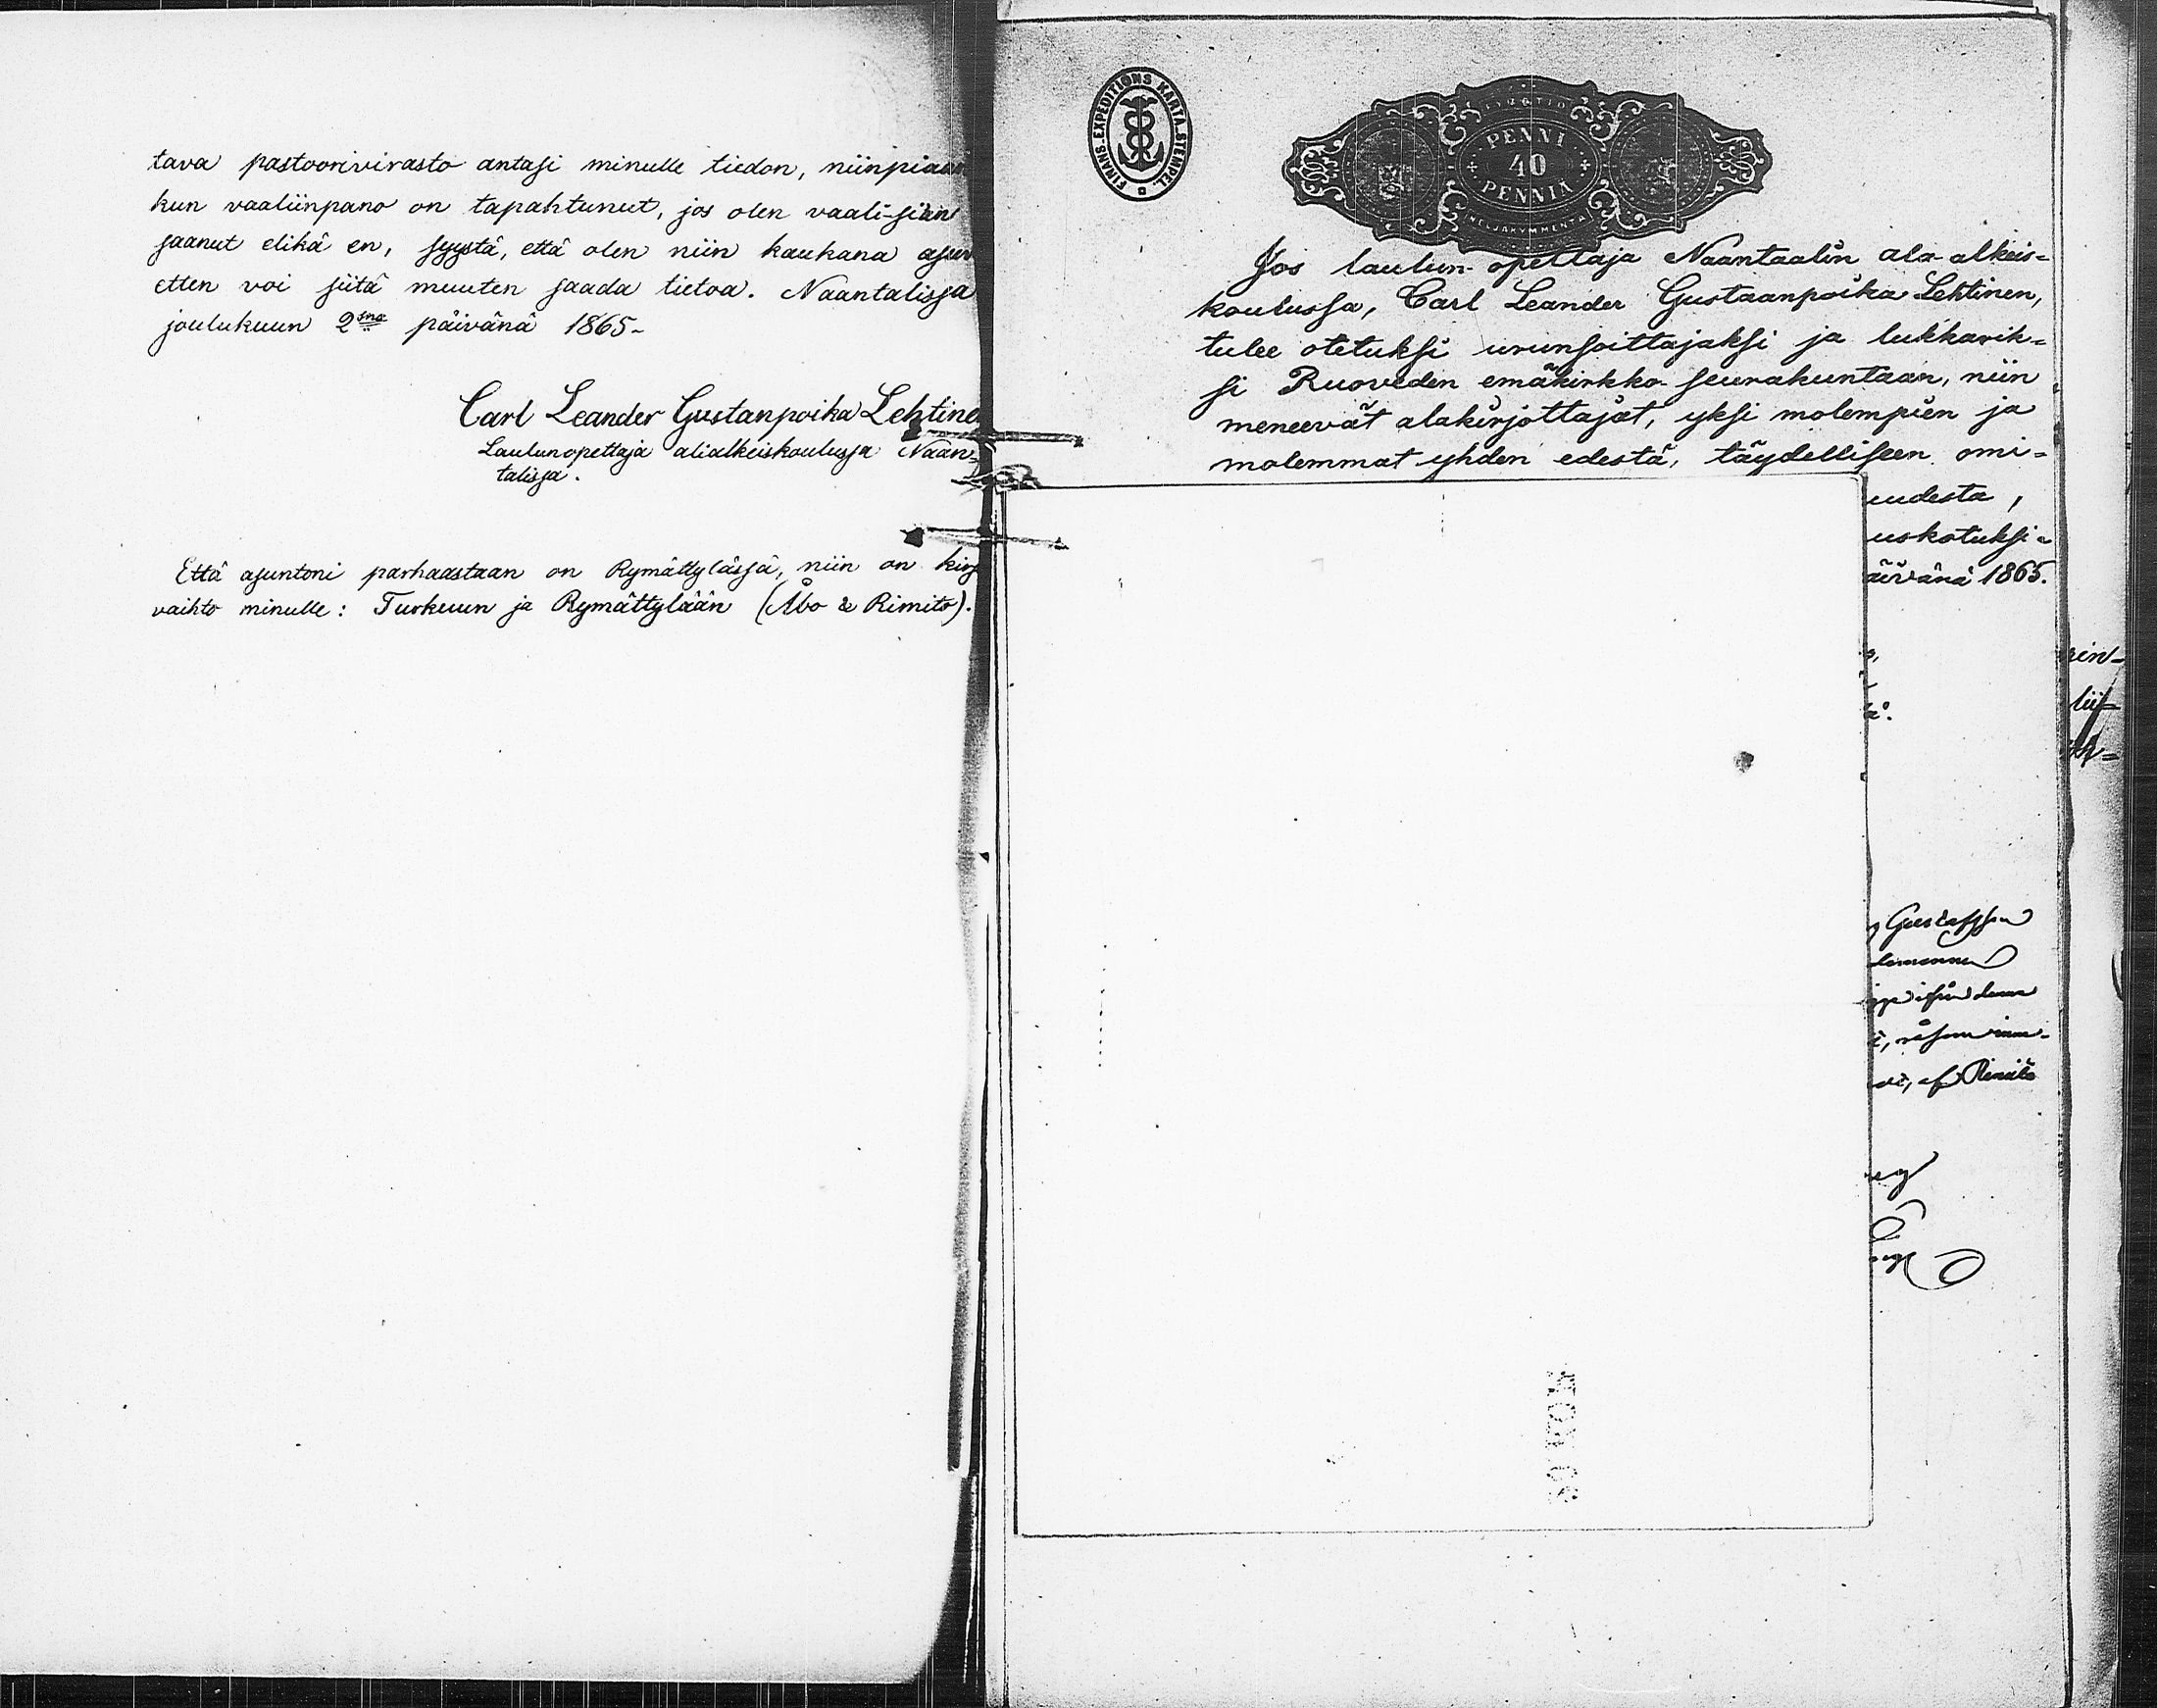 tava pastoorivirasto antasi minulle tiedon, niinpiaan
kun vaaliinpano on tapahtunut, jos olen vaali-sian
saanut elikä en, syystä, että olen niin kaukana
etten voi siitä muuten saada tietoa. Naantalissa
joulukuun 2sna päivänä 1865-
Carl Leander Gustanpoika Lehtine
Laulunopettaja alialkeiskoulussa Naan-
talissa.
Että asuntoni parhaastaan on Rymättylässä, niin on kirj
vaihto minulle: Turkuun ja Rymättylään (Åbo & Rimito).
FINANS-EXPEDITIONS KARTA.STEMPEL.
PENNI
40
PENNIÄ
NELJÄKYMMENTÄ
Jos laulun-opettaja Naantaalin ala-alkeis=
koulussa, Carl Leander Gustaanpoika Lehtinen,
tulee otetuksi urunsoittajaksi ja lukkarik=
si Ruoveden emäkirkko-seurakuntaan, niin
meneevät alakirjottajat, yksi molempien ja
molemmat yhden edestä, täydelliseen omi=
uudesta,
uskotuksi=
äivänä 1865.
rin-
lii=
Gustafsson
af Rimito